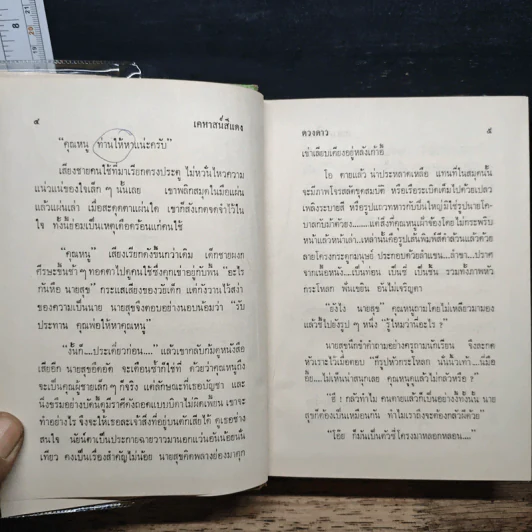 8
๔ เคหาสน์สีแดง
"คุณหนู ท่านให้หาแน่ะครับ"
เสียงชายคนใช้ที่มาเรียกตรงประตู ไม่หวั่นไหวความ
แน่วแน่ของใจเล็ก ๆ นั้นเลย เขาพลิกสมุดในมือแผ่น
แล้วแผ่นเล่า เมื่อสะดุดตาแผ่นใด เขาก็สังเกตจดจำไว้ใน
ใจ ทั้งนี้ย่อมเป็นเหตุเดือดร้อนแก่คนใช้
"คุณหนู" เสียงเรียกดังขึ้นกว่าเดิม เด็กชายผงก
ศีรษะขึ้นช้า ๆ ทอดตาไปดูคนใช้ซึ่งคุกเข่าอยู่กับพื้น "อะไร
กันหือ นายสุข" กระแสเสียงของวัยเด็ก แต่กังวานไว้สง่า
ของความเป็นนาย นายสุขจึงตอบอย่างนอบน้อมว่า "รับ
ประทาน คุณพ่อให้หาคุณหนู"
"งั้นก็...ประเดี๋ยวก่อน...." แล้วเขากลับก้มดูหนังสือ
เสียอีก นายสุขอึดอัด จะเตือนซ้ำก็ใช่ที่ ด้วยว่าคุณหนูถึง
จะเป็นคุณผู้ชายเล็ก ๆ ก็จริง แต่ลักษณะที่เธอบัญชา และ
นิ่งขรึมอย่างบัดนี้ดูมีราศีดังถอดแบบบิดาไม่ผิดเพี้ยน เขาจะ
ทำอย่างไร จึงจะให้เธอละเจ้าสิ่งที่อยู่บนตักเสียได้ ดูเธอช่าง
สนใจ นัยน์ตาเป็นประกายฉายวาวมานอกแว่นอันน้อยนั้น
เทียว คงเป็นเรื่องสำคัญไม่น้อย นายสุขคิดพลางย่องมาคุก
ดวงดาว ๕
เข่าเลียบเคียงอยู่หลังเก้าอี้
โอ ตายแล้ว น่าประหลาดเหลือ แทนที่ในสมุดนั้น
จะมีภาพโจรสลัดขุดสมบัติ หรือเรือระเบิดเต็มไปด้วยเปลว
เพลิงระบายสี หรือรูปแถวทหารกับปืนใหญ่มีใช้รูปนายโค-
บาลกับม้าตัวง.......แต่สิ่งที่คุณหนูเฝ้าจ้องโดยไม่กระพริบ
หน้าแล้วหน้าเล่า...เหล่านั้นคือรูปเส้นพิมพ์สีดำล้วนแล้วด้วย
ลายโครงกระดูกมนุษย์ ประกอบด้วยลำแขน...ลำขา...ปราศ
จากเนื้อหนัง....เป็นท่อน เป็นซี่ เป็นชิ้น รวมทั้งภาพหัว
กระโหลก ฟันเขยิน อันไม่เจริญตา
"ยังไง นายสุข" คุณหนูถามโดยไม่เหลียวมามอง
แล้วชี้ไปยังรูป ๆ หนึ่ง "รู้ไหมว่านี่อะไร ?"
นายสุขนึกขำคำถามอย่างครูถามนักเรียน จึงละกด
หัวเราะไว้เมื่อตอบ "ก็รูปหัวกระโหลก นั่นนั้วเท้า...นี่มือ
อื้อ....ไม่เห็นน่าสนุกเลย คุณหนูดูแล้วไม่กลัวหรือ ?"
"ฮึ ! กลัวทำไม คนตายแล้วก็เป็นอย่างงี้ทั้งนั้น นาย
สุขก็ต้องเป็นเหมือนกัน ทำไมเราถึงจะต้องกลัวผีด้วย"
"โอ๊ย ก็มันเป็นตัวซี่โครงมาหลอกหลอน...."